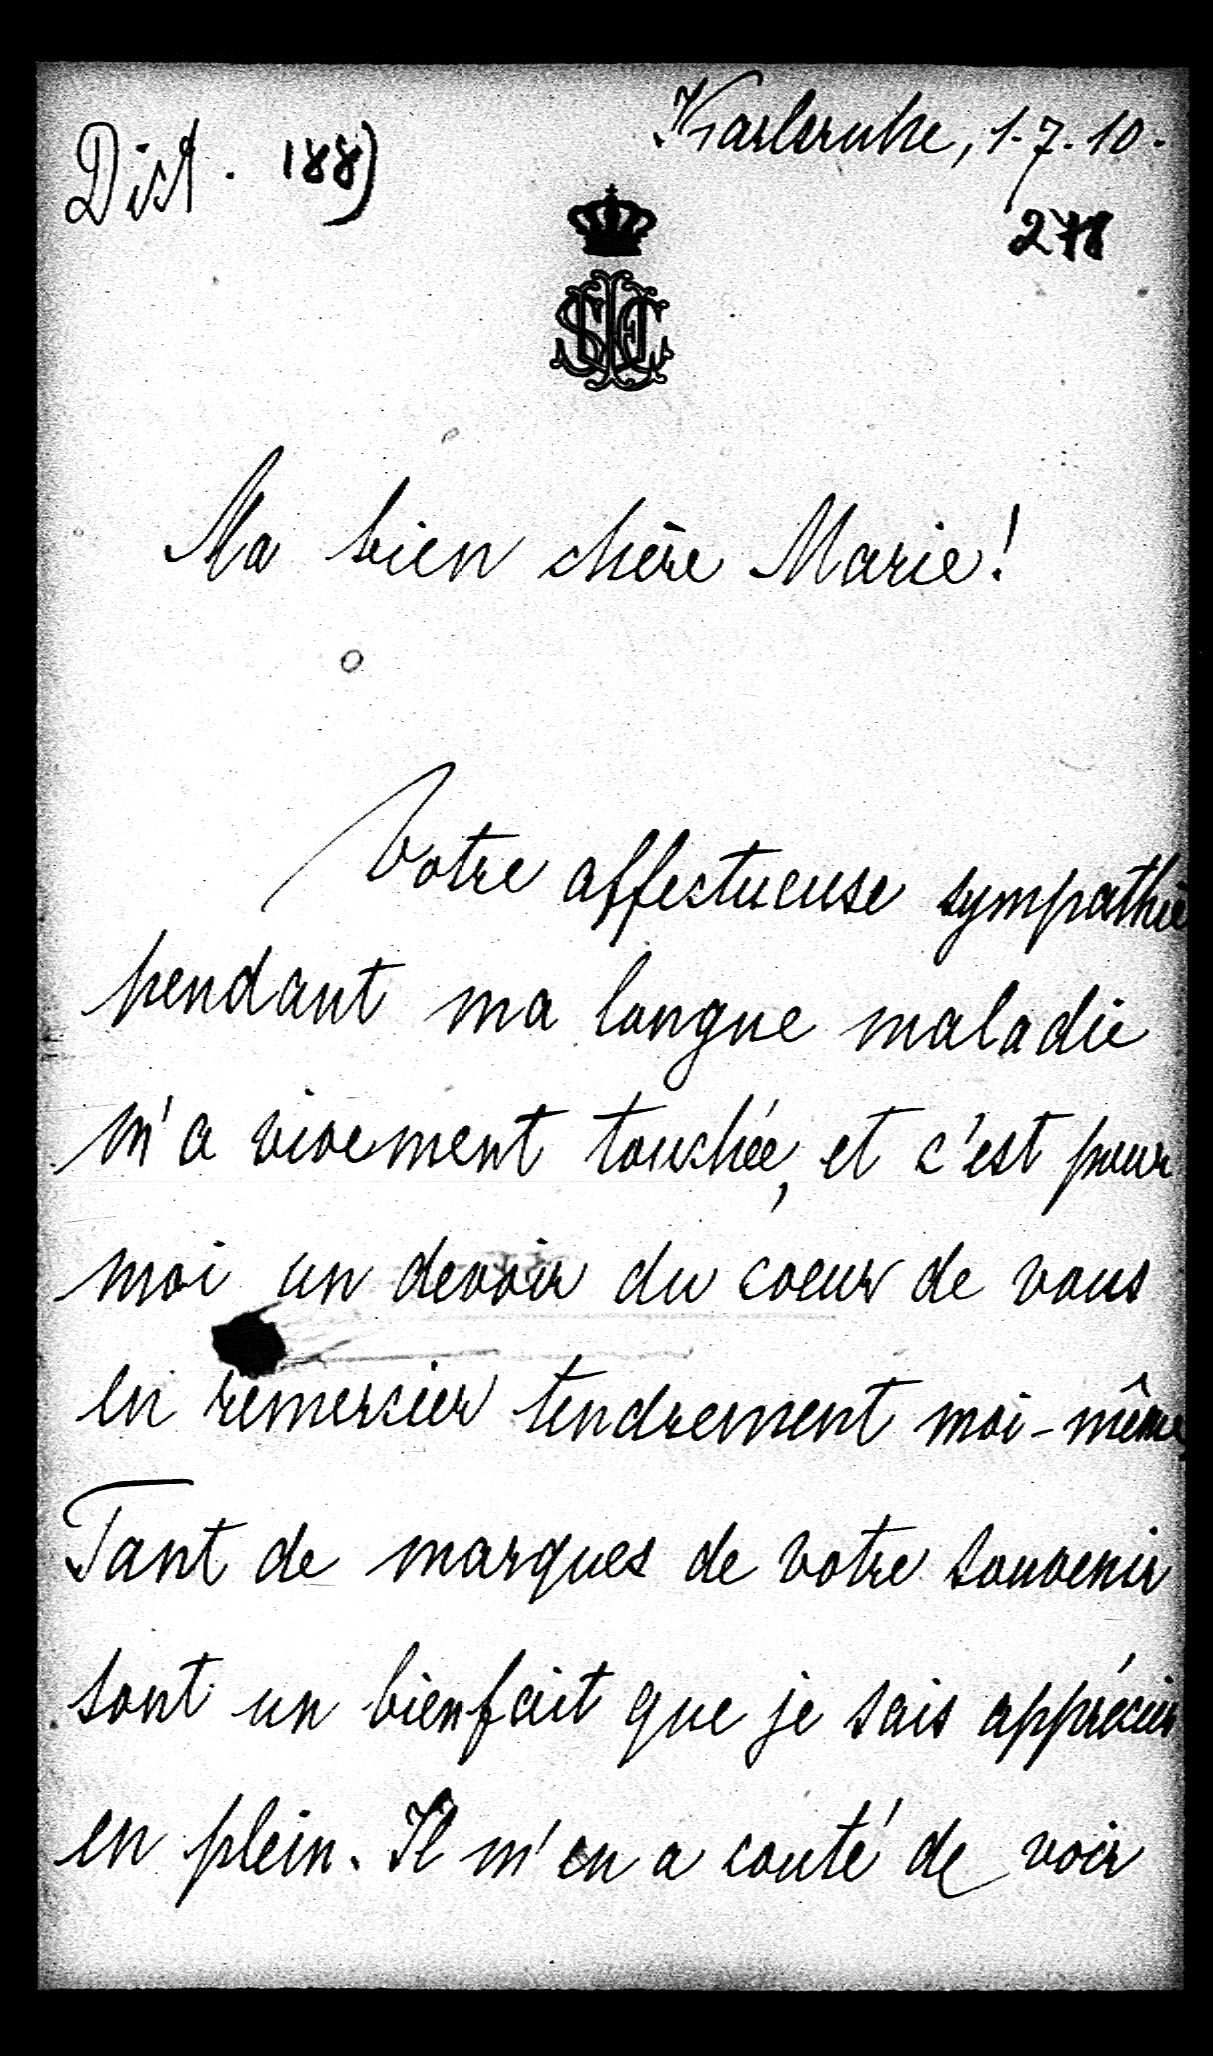 Karlsruhe, 1.7.10.
Dict. 188)
278
Ma bien chère Marie!
Votre affectueuse sympathie
pendant ma longue maladie
m'a vivement touchée, et c'est pour
moi un devoir du coeur de vous
en remercier tendrement moi-même,
Tant de marques de votre souvenir
sont un bienfait que je sais apprécier
en plein. Il m'en a couté de voir